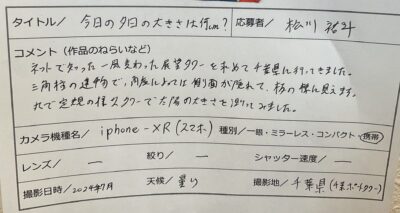 タイトル/ 今日の夕日の大きさは何cm? 応募者/ 松川 祐斗
コメント(作品のねらいなど)
ネットで知った一風変わった展望タワーを求めて千葉県に行ってきました。
三角柱の建物で、角度によっては側面が隠れて、板の様に見えます。
まるで定規の様なタワーで太陽の大きさを測ってみました。
カメラ機種名/ iphone-XR(スマホ) 種別/一眼・ミラーレス・コンパクト・携帯
レンズ/ ー 絞り/ ー シャッター速度/ ー
撮影日時/2024年7月 天候/ 曇り 撮影地/千葉県(千葉ポートタワー)